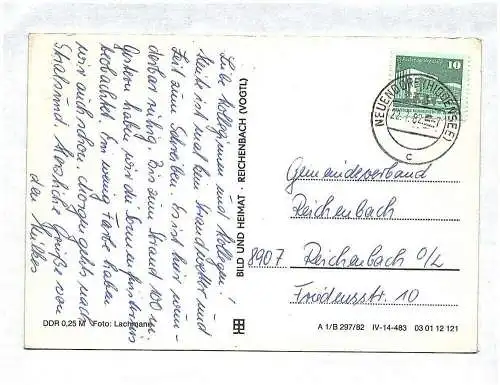 Liebe Kolleginnen und Kollegen!
Heute ist mal ein Strandwetter und
Zeit zum Schreiben. Es ist hier wun-
derbar ruhig. Bis zum Strand 100 m.
Gestern haben wir die Sonnenfinsternis
beobachtet. Ein wenig Farbe haben
wir auch schon. Morgen gehts nach
Stralsund. Herzliche Grüße von
den
BILD UND HEIMAT · REICHENBACH (VOGTL)
DDR 0,25 M Foto: Lachmann
10
NEUENDORF (HIDDENSEE)
c
Gemeindeverband
Reichenbach
8907 Reichenbach O/L
Friedensstr. 10
A 1/B 297/82 IV-14-483 03 01 12 121